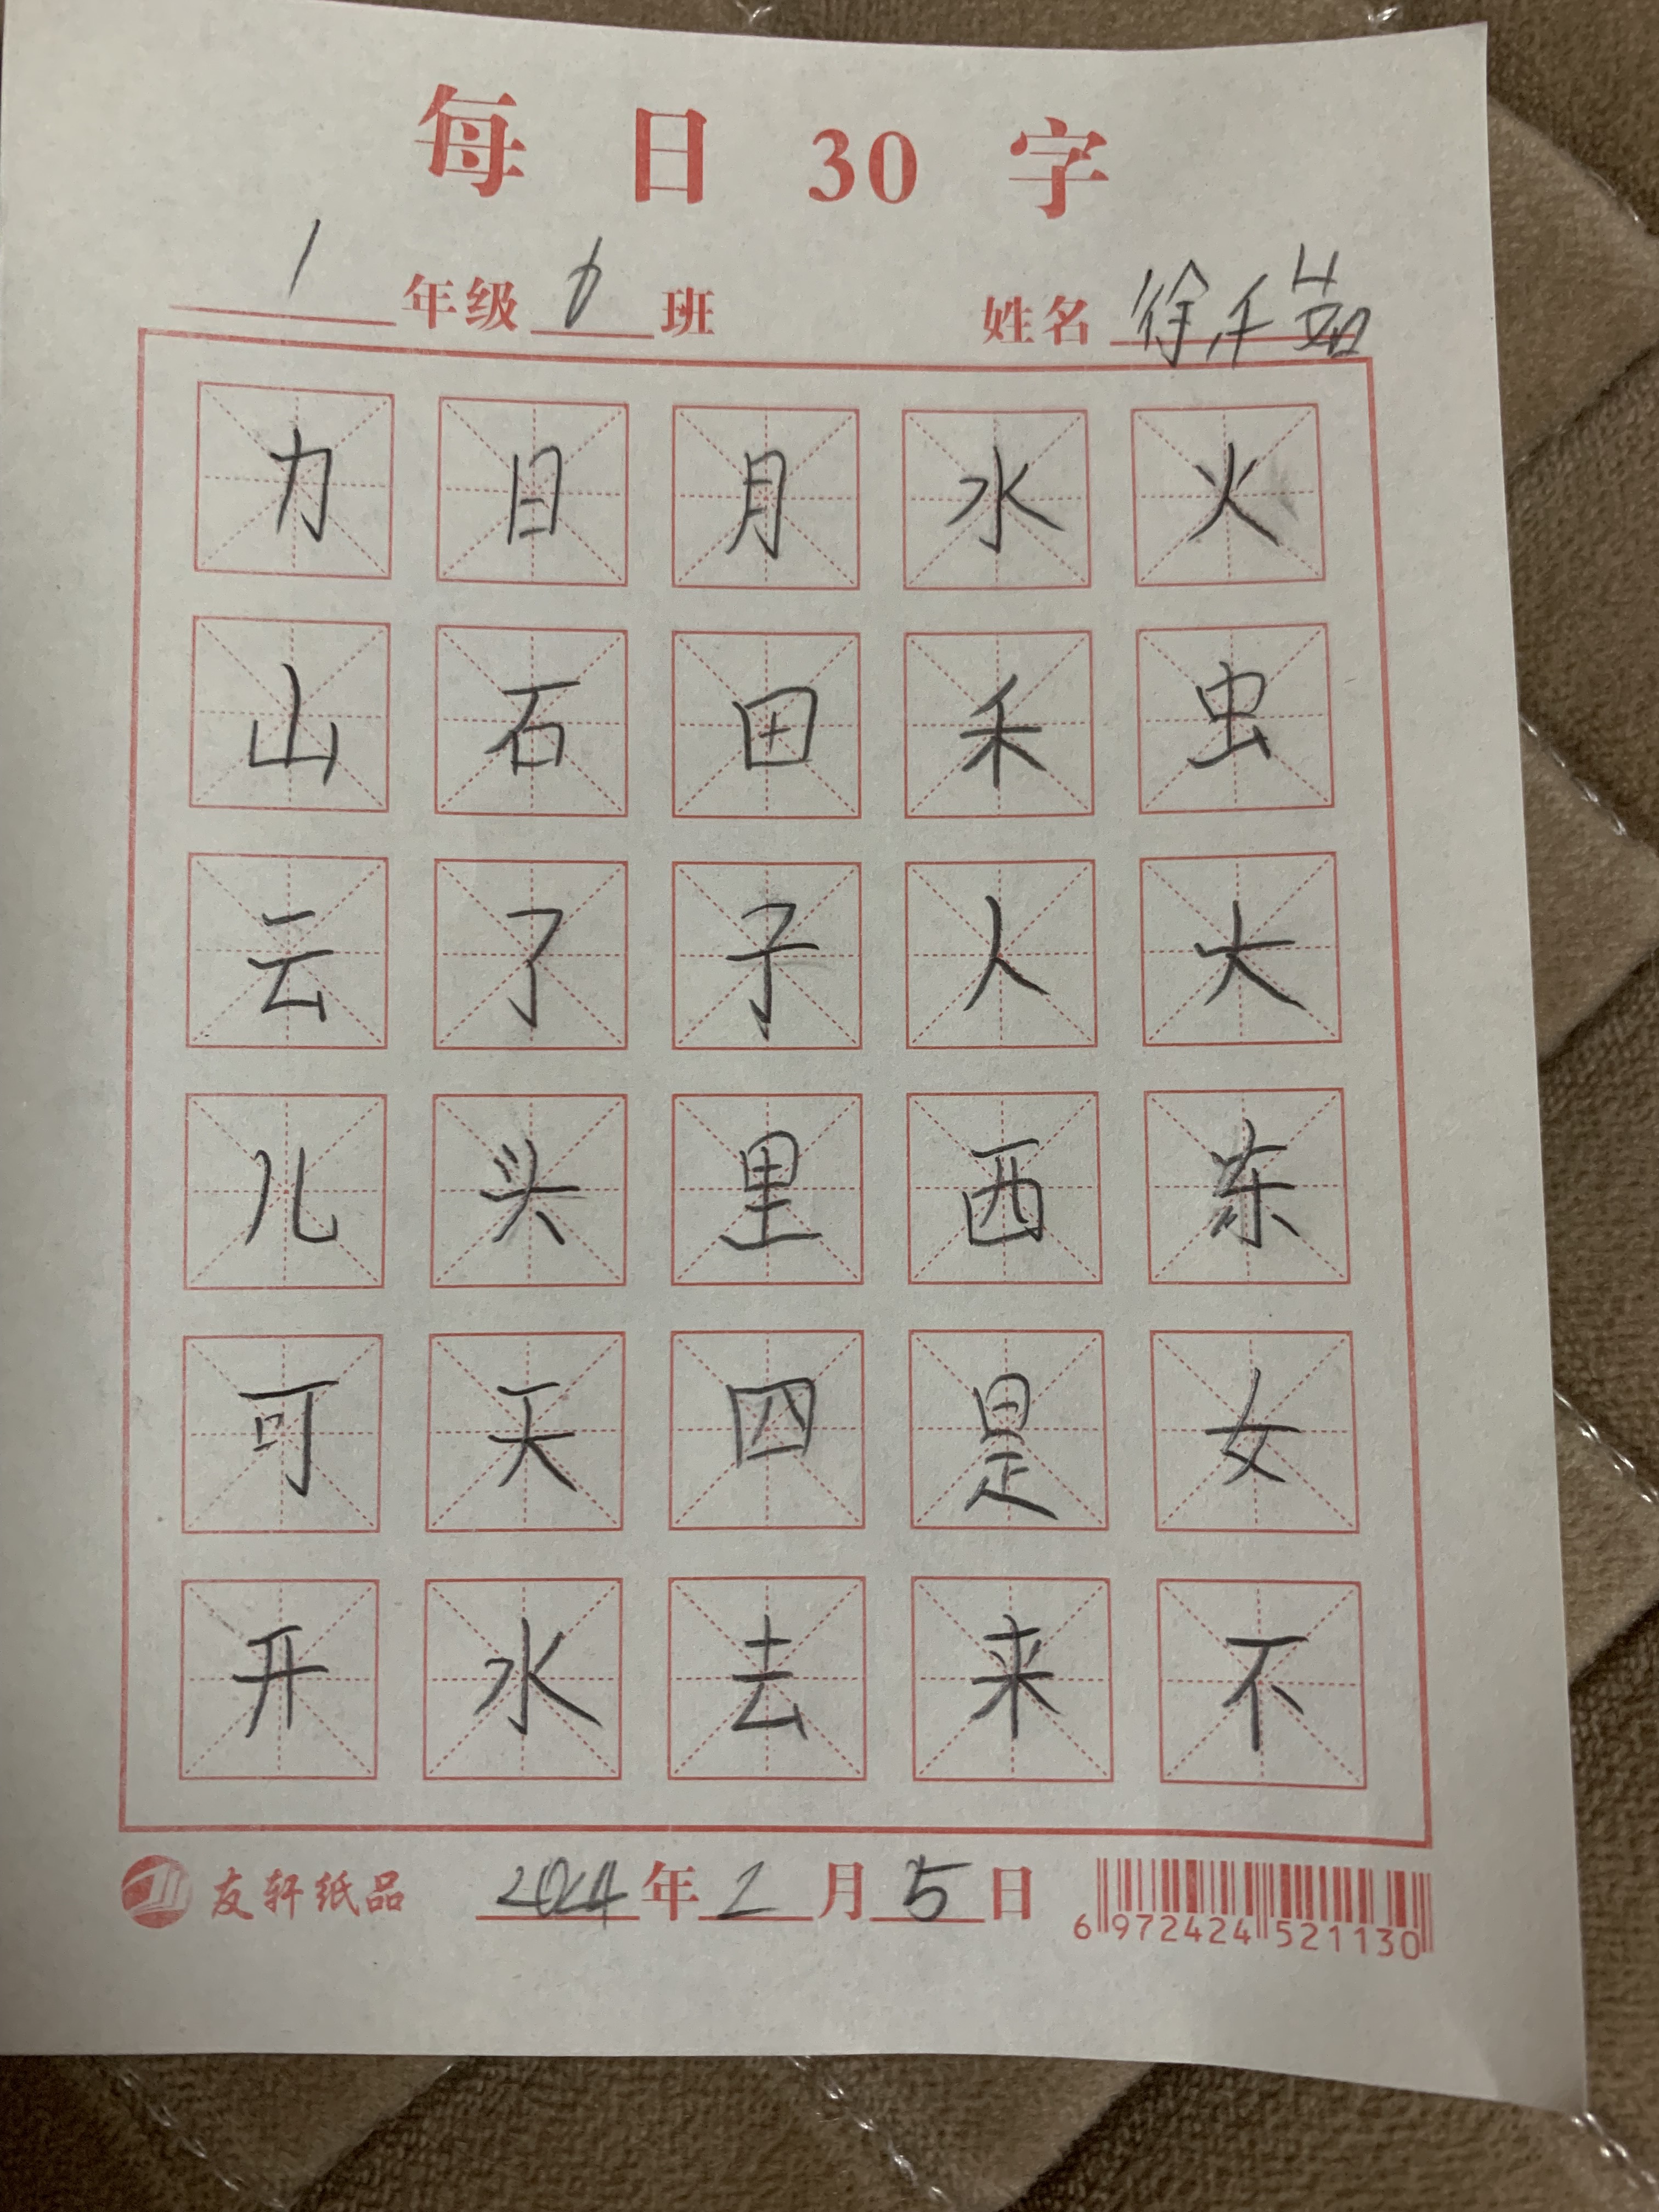 每日30字
1年级6班 姓名徐千茹
力日月水火
山石田禾虫
云了子人大
儿头里西东
可天四是女
开水去来不
友轩纸品 2024年2月5日 6972424521130